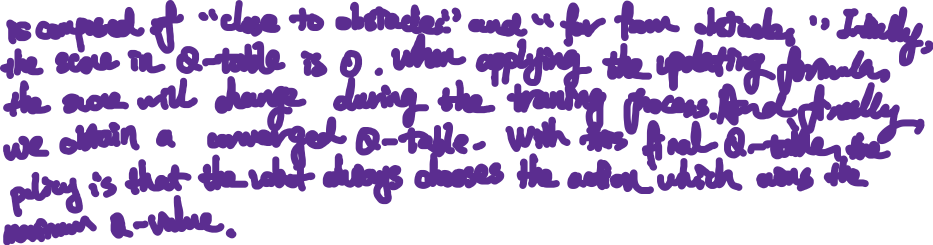 is composed of "close to obstacles" and "far from obstacles." Initially,
the score in Q-table is 0. When applying the updating formula,
the score will change during the training process. And finally
we obtain a converged Q-table. With this final Q-table, the
policy is that the robot always chooses the action which owns the
maximum Q-value.